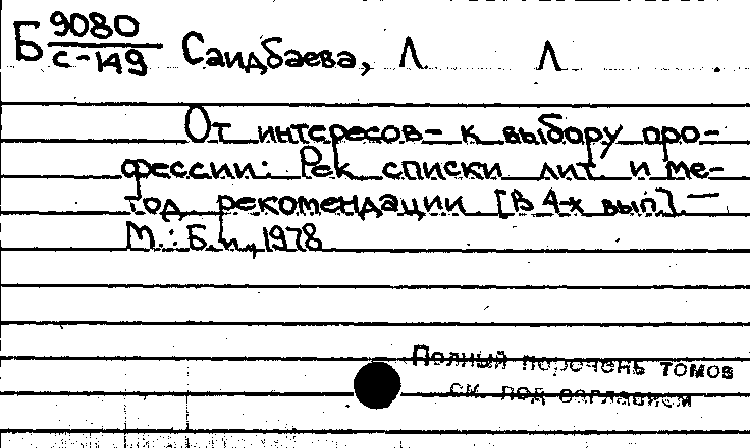 Б 9080/с-149 Саидбаева, Л. Л.
От интересов - к выбору про-
фессии: Рек. списки лит. и ме-
тод. рекомендации [В 4-х вып]. —
М.: Б. и., 1978
Полный перечень томов
см. под заглавием